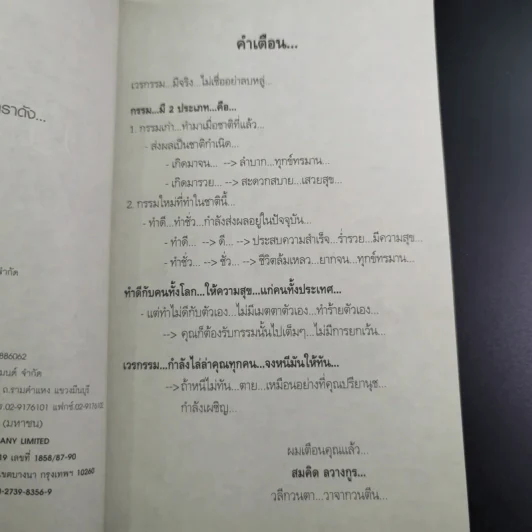 ราดัง...
จำกัด
886062
มนต์ จำกัด
ถ.รามคำแหง แขวงมีนบุรี
ร.02-9176101 แฟกซ์.02-91761
(มหาชน)
ANY LIMITED
19 เลขที่ 1858/87-90
เขตบางนา กรุงเทพฯ 10260
-2739-8356-9
คำเตือน...
เวรกรรม...มีจริง...ไม่เชื่ออย่าลบหลู่...
กรรม...มี 2 ประเภท...คือ...
1. กรรมเก่า...ทำมาเมื่อชาติที่แล้ว...
- ส่งผลเป็นชาติกำเนิด...
- เกิดมาจน... --> ลำบาก...ทุกข์ทรมาน...
- เกิดมารวย... --> สะดวกสบาย...เสวยสุข...
2. กรรมใหม่ที่ทำในชาตินี้...
- ทำดี...ทำชั่ว...กำลังส่งผลอยู่ในปัจจุบัน...
- ทำดี... --> ดี... --> ประสบความสำเร็จ...ร่ำรวย...มีความสุข...
- ทำชั่ว... --> ชั่ว... --> ชีวิตล้มเหลว...ยากจน...ทุกข์ทรมาน...
ทำดีกับคนทั้งโลก...ให้ความสุข...แก่คนทั้งประเทศ...
- แต่ทำไม่ดีกับตัวเอง...ไม่มีเมตตาตัวเอง...ทำร้ายตัวเอง...
--> คุณก็ต้องรับกรรมนั้นไปเต็มๆ...ไม่มีการยกเว้น...
เวรกรรม...กำลังไล่ล่าคุณทุกคน...จงหนีมันให้ทัน...
--> ถ้าหนีไม่ทัน...ตาย...เหมือนอย่างที่คุณปรียานุช...
กำลังเผชิญ...
ผมเตือนคุณแล้ว...
สมคิด ลวางกูร...
วลีกวนตา...วาจากวนตีน...